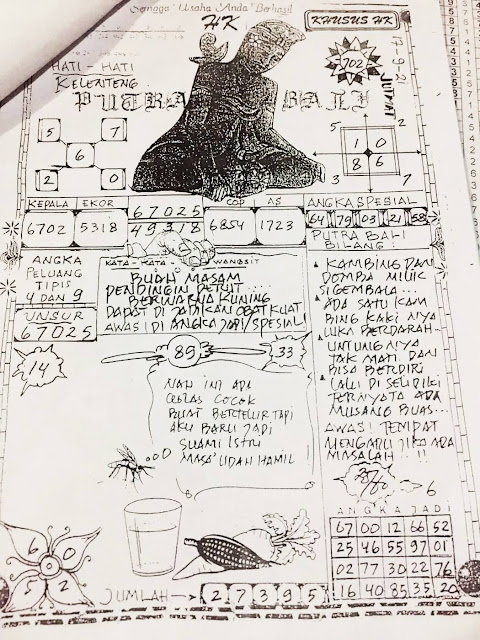 Semoga Usaha Anda Berhasil
HK
KHUSUS HK
HATI - HATI
KELENTENG
PUTRA BALI
702
17-9-21
JUMAT
5 7
6
2 0
5 2
1 0
8 6
3 7
KEPALA EKOR
6702 5318
67025
49318
COP AS
6854 1723
ANGKA SPESIAL
64 79 03 21 58
PUTRA BALI
BILANG :
ANGKA
PELUANG
TIPIS
4 DAN 9
UNSUR
67025
14
KATA - KATA WANGSIT
BUAH MASAM
PENDINGIN PERUT ...
BERWARNA KUNING
DAPAT DI JADIKAN OBAT KUAT
AWAS! DI ANGKA JADI/SPESIAL
89
33
NAH INI ADA
GELAS COCOK
BUAT BERTELUR TAPI
AKU BARU JADI
SUAMI ISTRI
MASA' UDAH HAMIL !
KAMBING DAN
DOMBA MILIK
SI GEMBALA ...
ADA SATU KAM
BING KAKI NYA
LUKA BERDARAH -
UNTUNG NYA
TAK MATI DAN
BISA BERDIRI
LALU DI SELIDIKI
TERNYATA ADA
MUSANG BUAS ...
AWAS! TEMPAT
MENGADU JIKA ADA
MASALAH .. !!
6
ANGKA JADI
67 00 12 66 52
25 46 55 97 01
02 77 30 22 76
16 40 85 35 20
6 0
5 2
JUMLAH
2 7 3 9 5